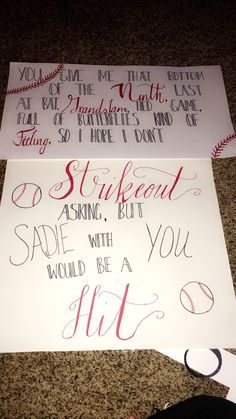 YOU GIVE ME THAT BOTTOM
OF THE Ninth, LAST
AT BAT, Grandslam, TIED GAME,
FULL OF BUTTERFLIES KIND OF
Feeling, SO I HOPE I DON'T
Strikeout
ASKING, BUT
SADIE WITH YOU
WOULD BE A
Hit